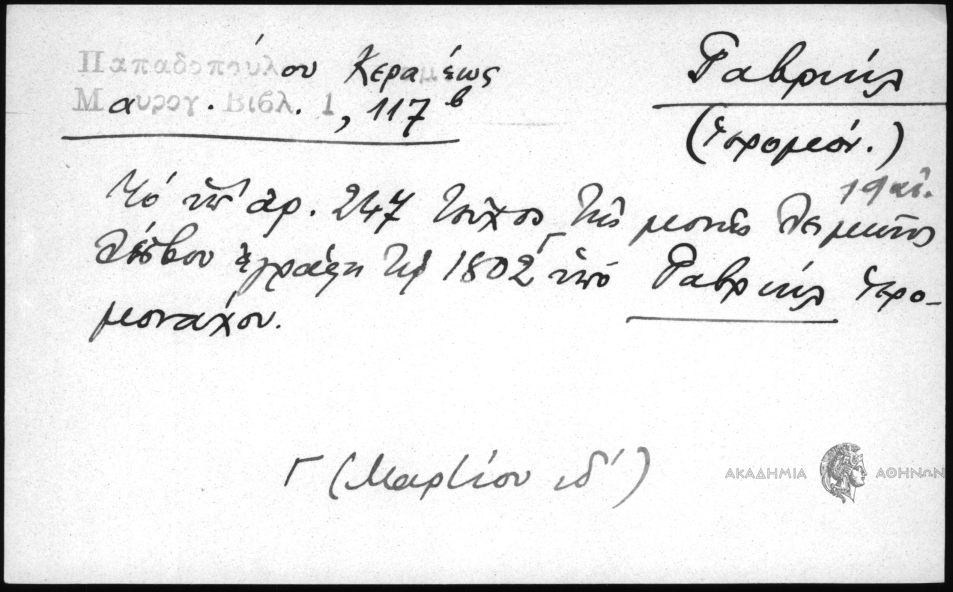 Παπαδοπούλου Κεραμέως
Μαυρογ. Βιβλ. 1, 117β
Γαβριήλ
(Ἱερομόν.)
19 αἰ.
Τὸ ὑπ' ἀρ. 247 τεῦχος τῆς μονῆς Λειμῶνος
Λέσβου ἐγράφη τῷ 1802 Γ ὑπὸ Γαβριήλ ἱερο-
μονάχου.
Γ (Μαρτίου ιδ´)
ΑΚΑΔΗΜΙΑ ΑΘΗΝΩΝ